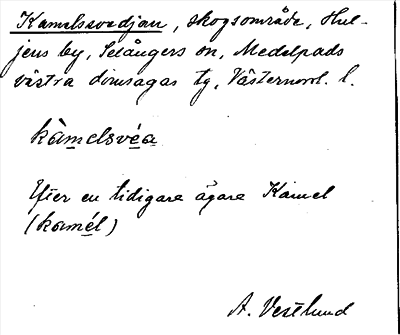 Kamelsvedjan, skogsområde, Hul-
jens by, Selångers sn, Medelpads
västra domsagas tg, Västernorrl. l.
kàmelsvéa
Efter en tidigare ägare Kamel
(kamél)
A. Vestlund